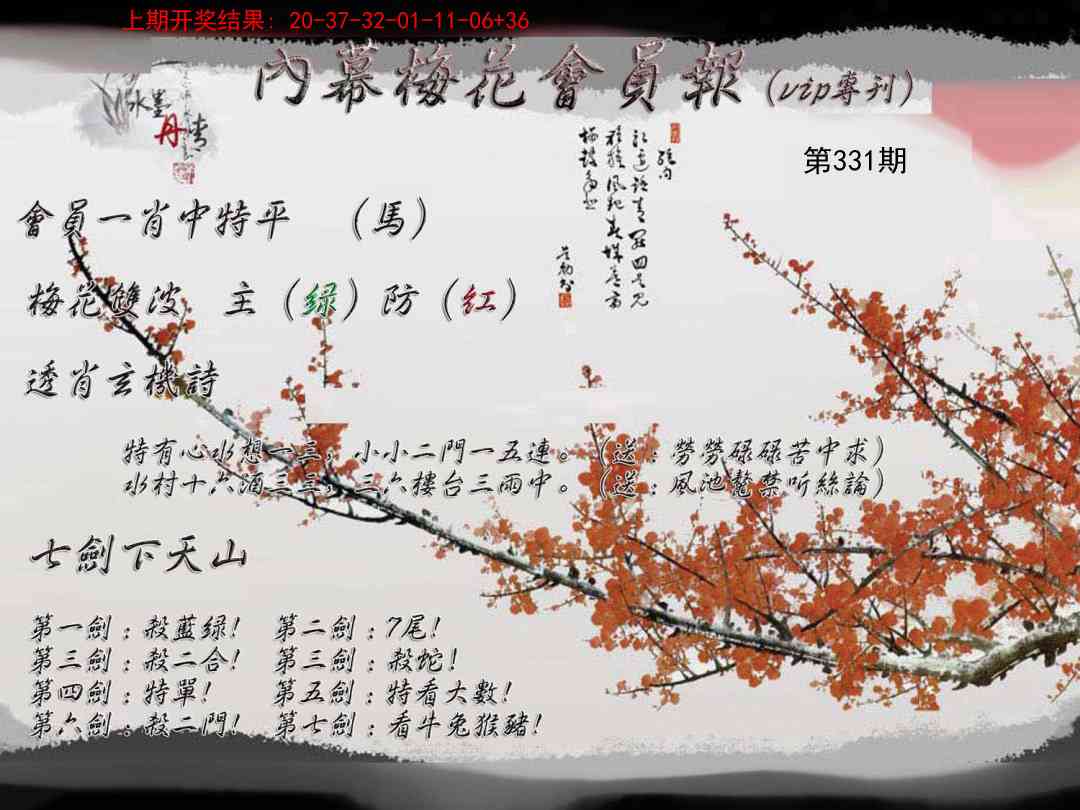 上期开奖结果: 20-37-32-01-11-06+36
內幕梅花會員報(vip專刊)
水墨
丹青
第331期
會員一肖中特平 (馬)
梅花雙波 主(绿)防(红)
透肖玄機詩
特有心水想一三,小小二門一五連。(送:勞勞碌碌苦中求)
水村十六酒三三,三六樓台三雨中。(送:風池鰲禁听絲論)
七劍下天山
第一劍:殺藍绿! 第二劍:7尾!
第三劍:殺二合! 第三劍:殺蛇!
第四劍:特單! 第五劍:特看大數!
第六劍:殺二門! 第七劍:看牛兔猴豬!